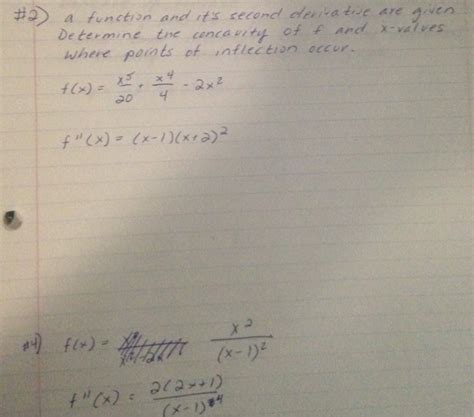 #2) a function and it's second derivative are given
Determine the concavity of f and x-values
where points of inflection occur.
f(x) = x⁵/20 + x⁴/4 - 2x²
f"(x) = (x-1)(x+2)²
#4) f(x) = x²/(x-1)²
f"(x) = 2(2x+1)/(x-1)⁴